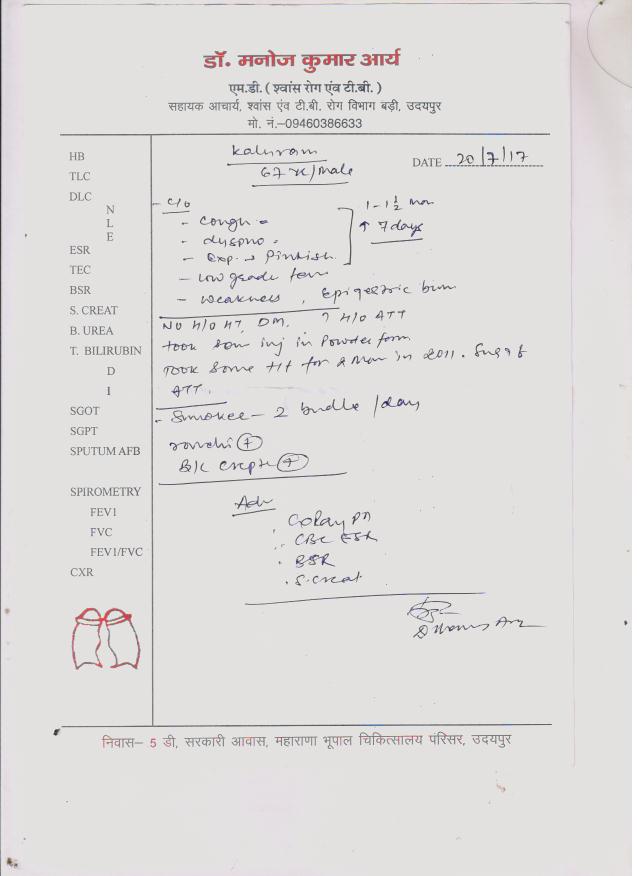 डॉ. मनोज कुमार आर्य
एम.डी. ( श्वांस रोग एंव टी.बी. )
सहायक आचार्य, श्वांस एंव टी.बी. रोग विभाग बड़ी, उदयपुर
मो. नं.–09460386633
Kaluram
67 /Male
DATE 20/7/17
HB
TLC
DLC
N
L
E
ESR
TEC
BSR
S. CREAT
B. UREA
T. BILIRUBIN
D
I
SGOT
SGPT
SPUTUM AFB
SPIROMETRY
FEV1
FVC
FEV1/FVC
CXR
- c/o
- cough
- dyspno
- Exp. → Pinkish
1 - 1½ Mon
↑ 7 days
- Low grade
- weakness, Epigestric burn
NO H/O HT, DM, ? H/O ATT
took som inj in Powder form
TOOK Some ttt for 2 Mon in 2011. Sugg of
ATT.
- Smoker - 2 bundle /day
ronchi (+)
B/L crepts (+)
Adv
. CXRay PA
. CBC ESR
. BSR
. S. Creat
निवास– 5 डी, सरकारी आवास, महाराणा भूपाल चिकित्सालय परिसर, उदयपुर